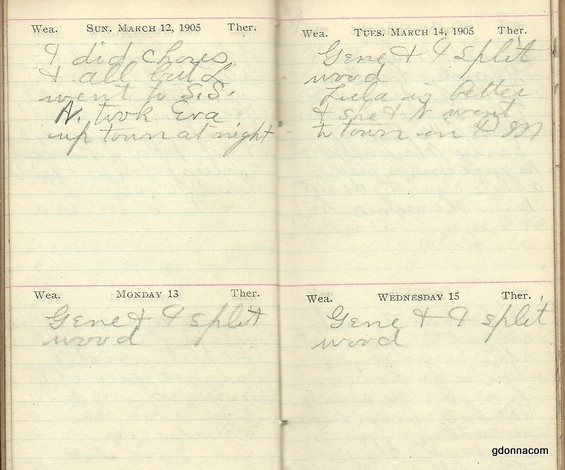 Wea. SUN. MARCH 12, 1905 Ther.
I did chores
& all but L
went to S.S.
N. took Eva
up town at night
Wea. MONDAY 13 Ther.
Gene & I split
wood
Wea. TUES. MARCH 14, 1905 Ther.
Gene & I split
wood
Lula is better
& she & N went
to town in P M
Wea. WEDNESDAY 15 Ther.
Gene & I split
wood
gdonnacom